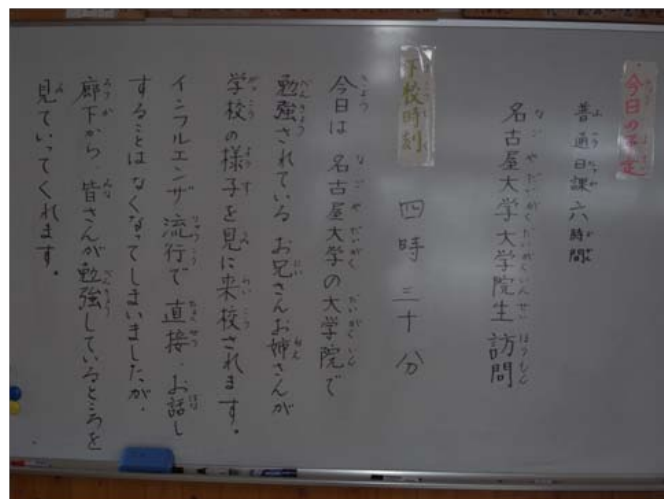 今日の予定
普通日課六時間
名古屋大学大学院生訪問
下校時刻 四時三十分
今日は名古屋大学の大学院で
勉強されているお兄さんお姉さんが
学校の様子を見に来校されます。
インフルエンザ流行で直接、お話し
することはなくなってしまいましたが、
廊下から、皆さんが勉強しているところを
見ていってくれます。